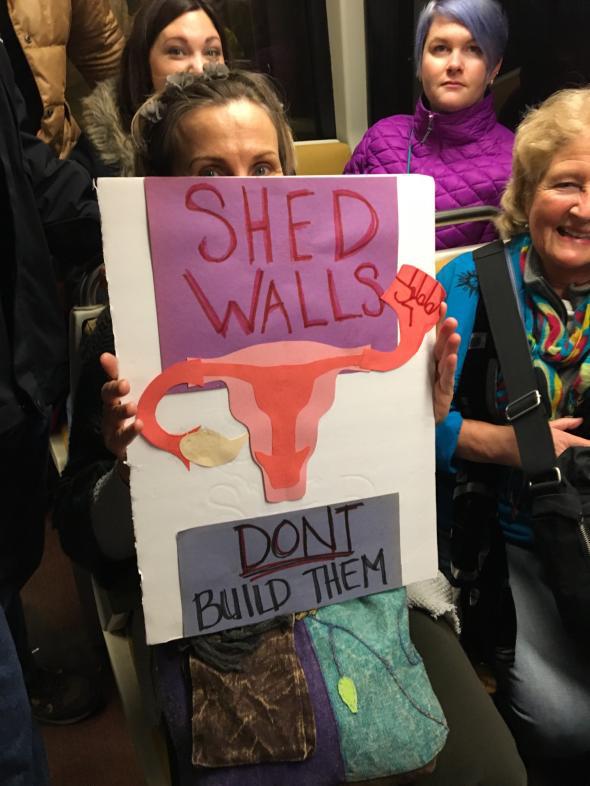 SHED
WALLS
DONT
BUILD THEM